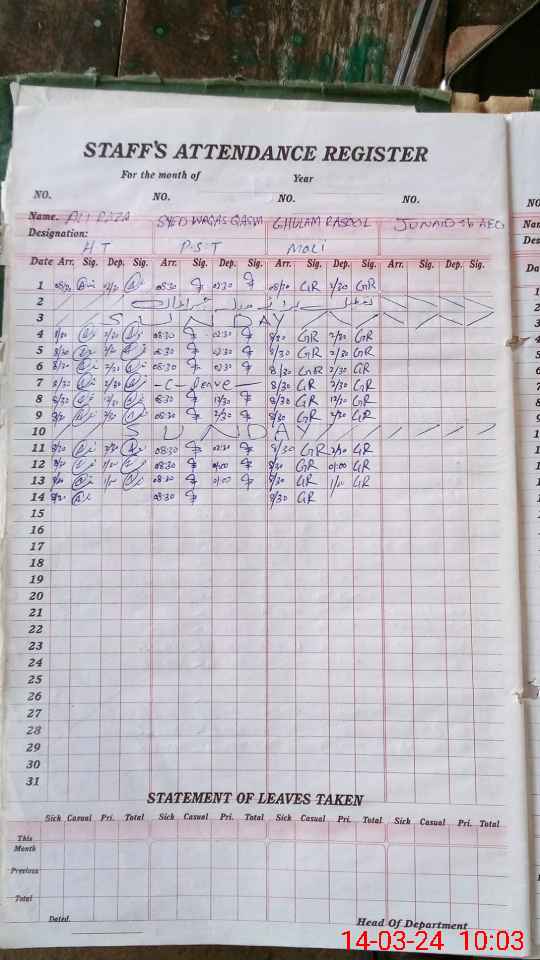 STAFF'S ATTENDANCE REGISTER
For the month of Year
NO. NO. NO. NO.
Name. ALI RAZA SYED WAQAS QASIM GHULAM RASOOL JUNAID
Designation: HT P.S.T MOLI
Date Arr. Sig. Dep. Sig. Arr. Sig. Dep. Sig. Arr. Sig. Dep. Sig. Arr. Sig. Dep. Sig.
1 08:30 02:30 GR 2/30 GR
2
3 SUNDAY
4 8/30 2/30 08:30 02:30 8/30 GR 2/30 GR
5 8/30 2/30 08:30 02:30 8/30 GR 2/30 GR
6 8/30 2/30 08:30 02:30 8/30 GR 2/30 GR
7 8/30 2/30 -C-leave- 8/30 GR 2/30 GR
8 8/30 12/30 08:30 12/30 8/30 GR 12/30 GR
9 8/30 2/30 08:30 2/30 8/30 GR 2/30 GR
10 SUNDAY
11 8/30 2/30 08:30 02:30 8/30 GR 2/30 GR
12 8/30 08:30 01:00 8/30 GR 01:00 GR
13 8/30 08:30 01:00 8/30 GR GR
14 8/30 08:30 8/30 GR
15
16
17
18
19
20
21
22
23
24
25
26
27
28
29
30
31
STATEMENT OF LEAVES TAKEN
Sick Casual Pri. Total Sick Casual Pri. Total Sick Casual Pri. Total Sick Casual Pri. Total
This
Month
Previous
Total
Dated. Head Of Department
14-03-24 10:03